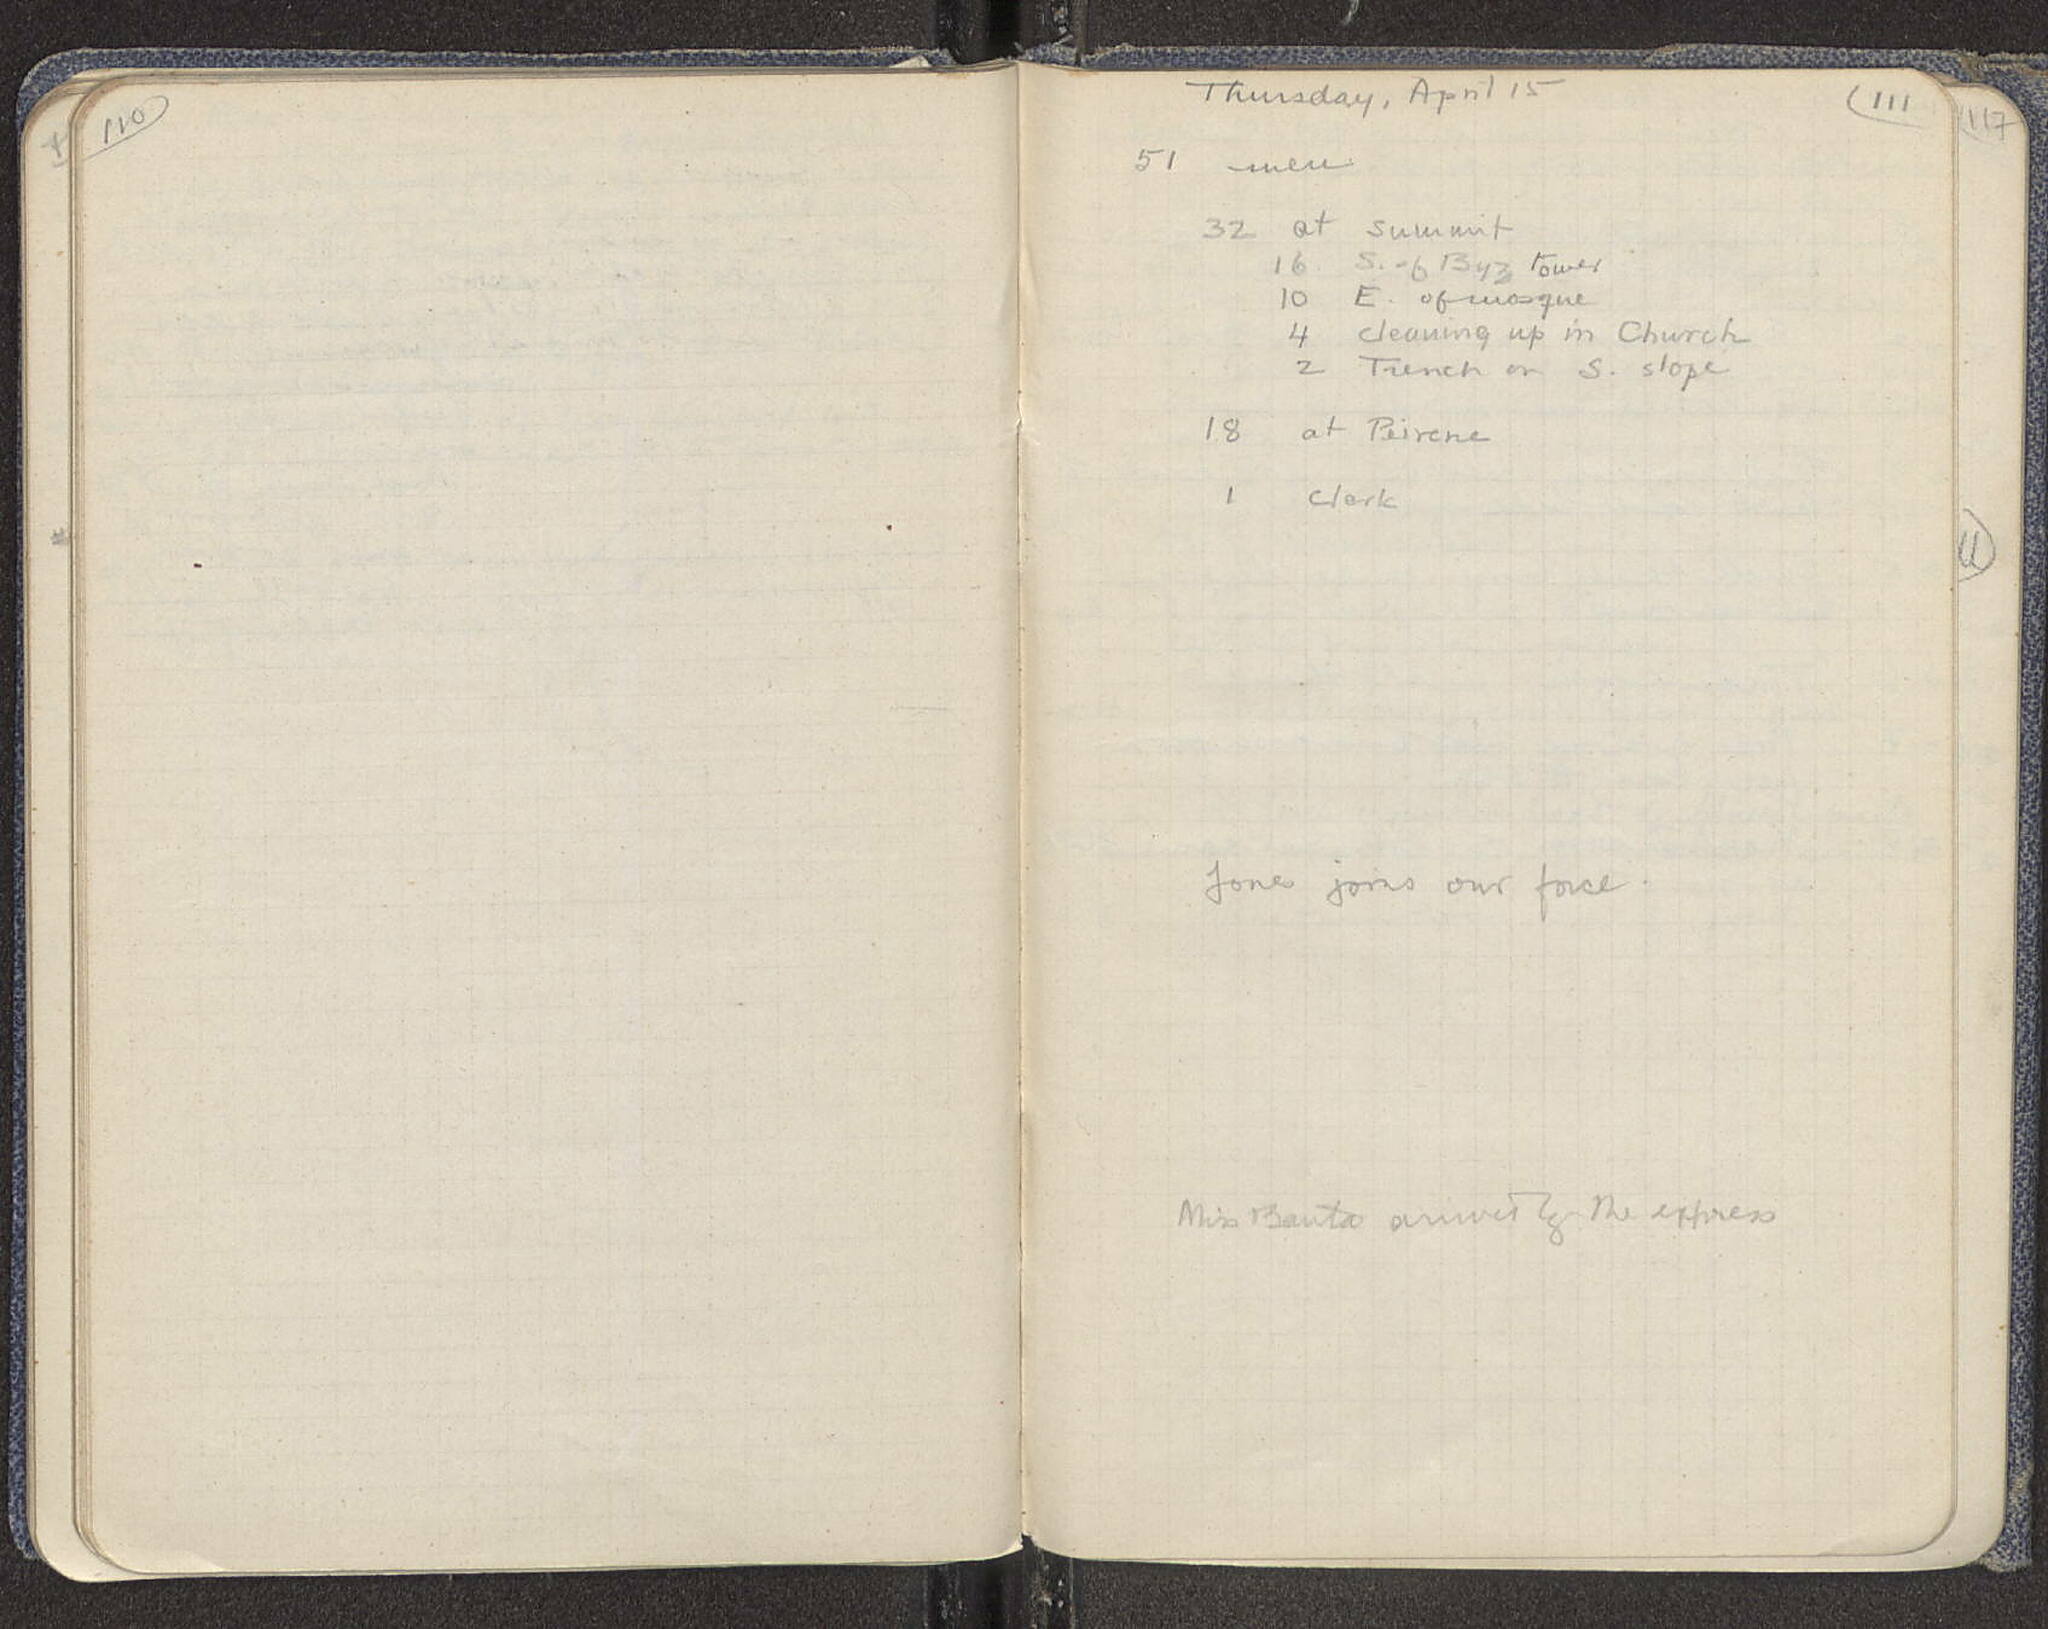 110
Thursday, April 15
111
117
51 men
32 at summit
16 S. of Byz tower
10 E. of mosque
4 cleaning up in Church
2 Trench on S. slope
18 at Peirene
1 clerk
Jones joins our force.
Miss Banta arrives by the express